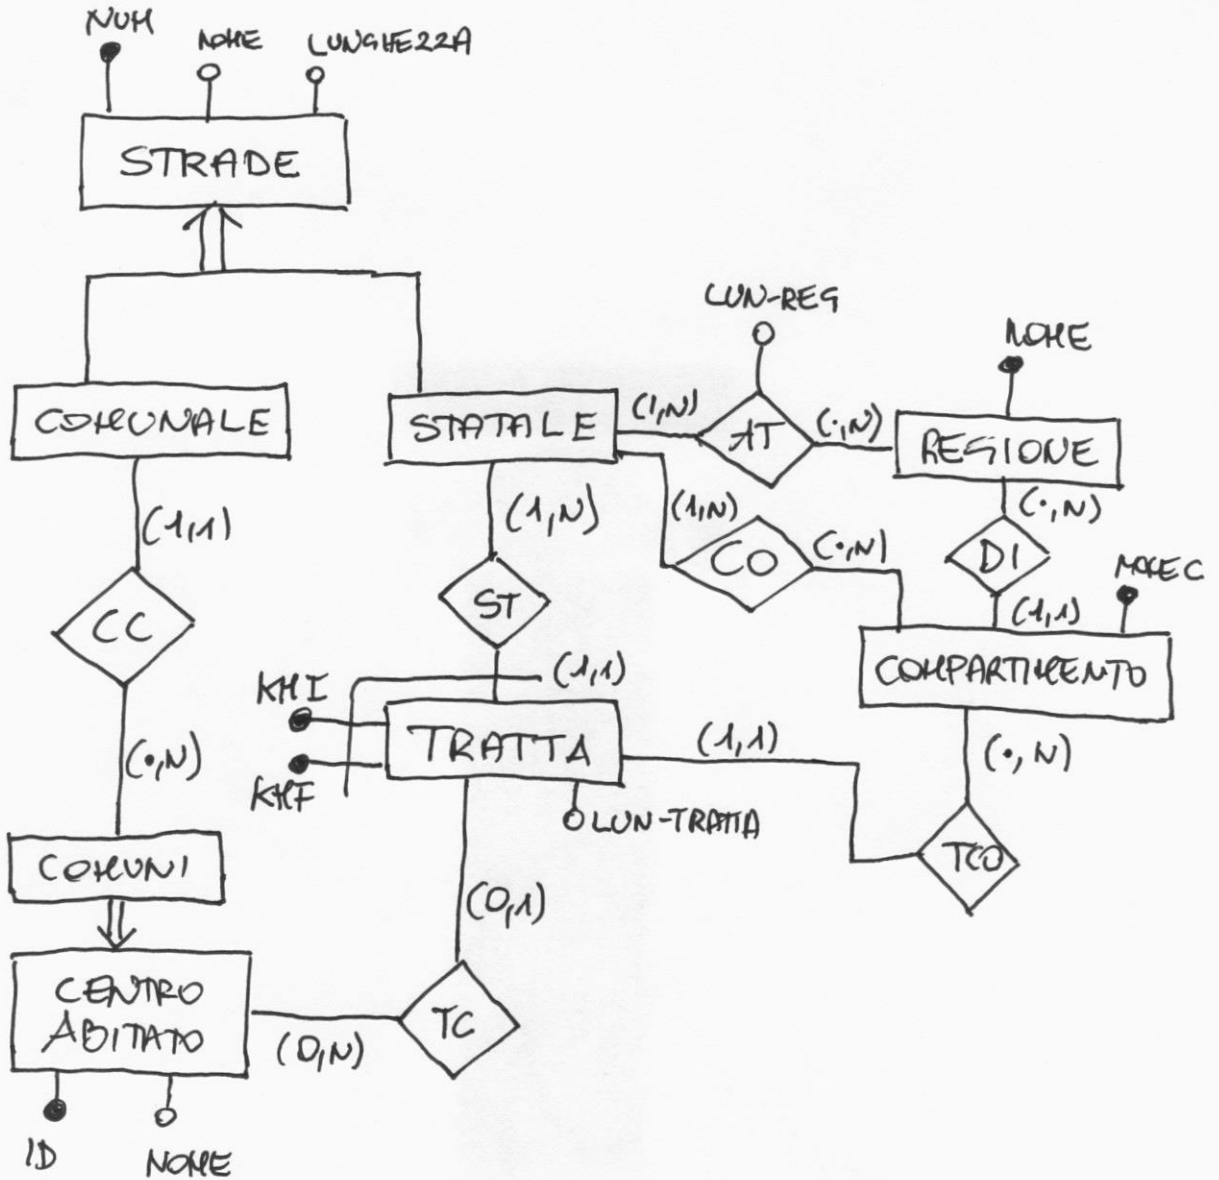 NUM
NOME
LUNGHEZZA
STRADE
LUN-REG
NOME
COMUNALE
STATALE
(1,N)
AT
(·,N)
REGIONE
(1,1)
(1,N)
(1,N)
CO
(·,N)
(·,N)
DI
NOMEC
CC
ST
(1,1)
(1,1)
COMPARTIMENTO
KMI
TRATTA
(1,1)
(·,N)
(·,N)
KMF
LUN-TRATTA
COMUNI
TCO
(0,1)
CENTRO
ABITATO
TC
(0,N)
ID
NOME